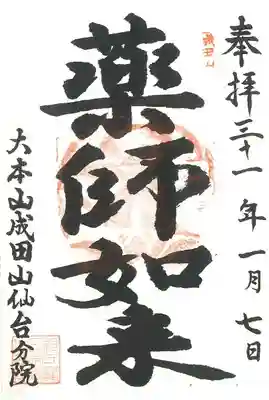 奉拝三十一年一月七日
薬師如来
大本山成田山仙台分院